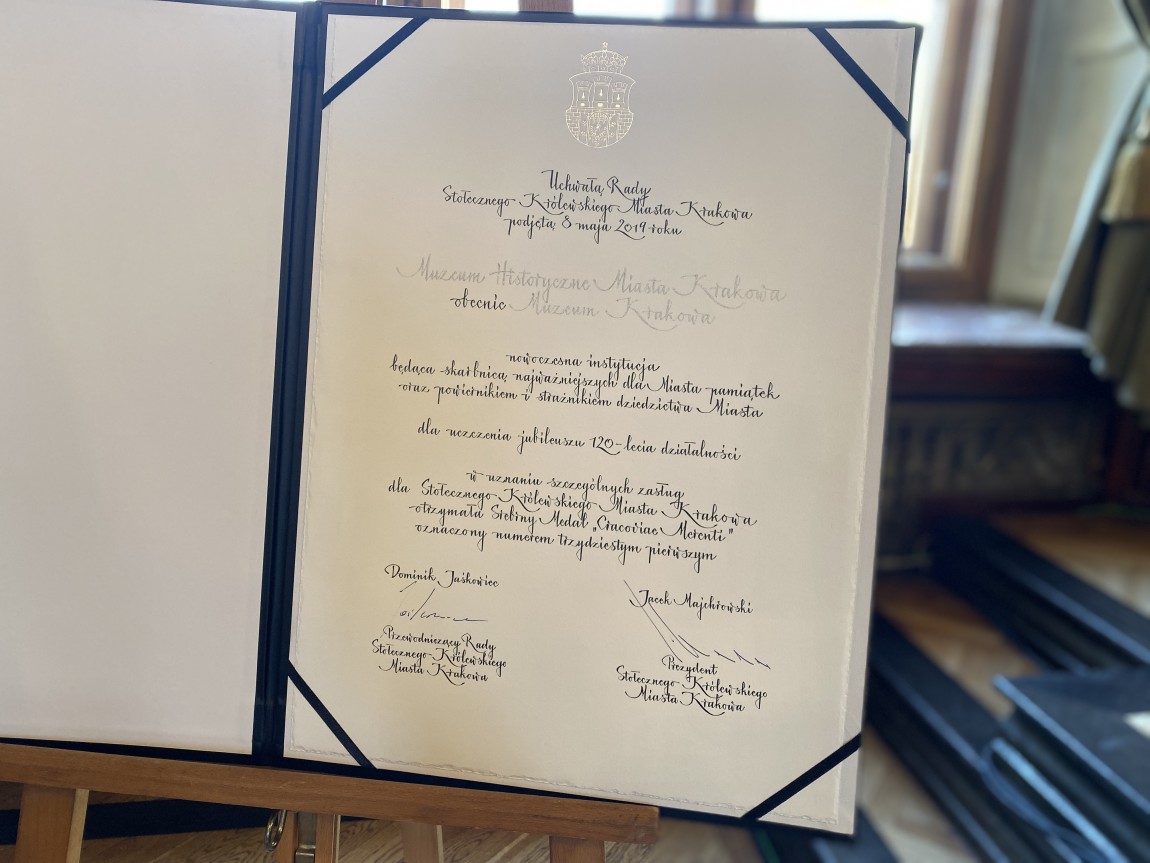 Uchwałą Rady
Stołecznego Królewskiego Miasta Krakowa
podjętą 8 maja 2019 roku
Muzeum Historyczne Miasta Krakowa
obecnie Muzeum Krakowa
nowoczesna instytucja
będąca skarbnicą najważniejszych dla Miasta pamiątek
oraz powiernikiem i strażnikiem dziedzictwa Miasta
dla uczczenia jubileuszu 120-lecia działalności
w uznaniu szczególnych zasług
dla Stołecznego Królewskiego Miasta Krakowa
otrzymała Srebrny Medal „Cracoviae Merenti”
oznaczony numerem trzydziestym pierwszym
Dominik Jaśkowiec
Przewodniczący Rady
Stołecznego Królewskiego
Miasta Krakowa
Jacek Majchrowski
Prezydent
Stołecznego Królewskiego
Miasta Krakowa